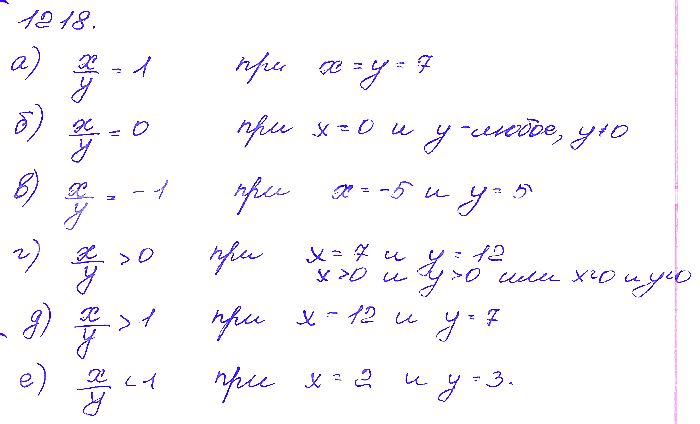 1218.
а) x/y = 1 при x = y = 7
б) x/y = 0 при x = 0 и y - любое, y≠0
в) x/y = -1 при x = -5 и y = 5
г) x/y > 0 при x = 7 и y = 12
x>0 и y>0 или x<0 и y<0
д) x/y > 1 при x - 12 и y = 7
е) x/y < 1 при x = 2 и y = 3.